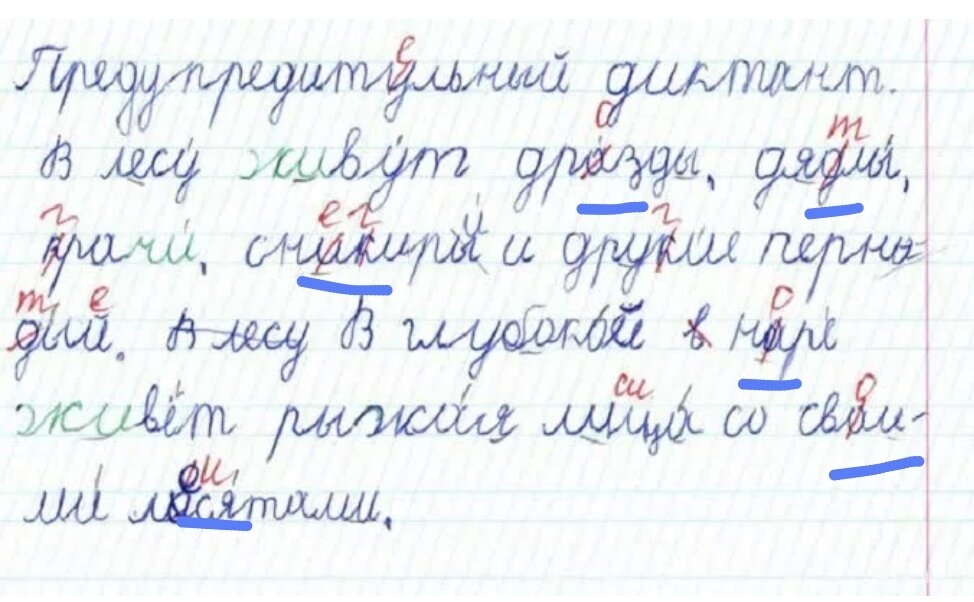 Предупредитульный диктант.
В лесу живут дразды, дядлы,
крачи, сникиры и друкие перна-
дый. А лесу В глубокой в наре
живёт рыжая лица со сваи-
ми лосятами.